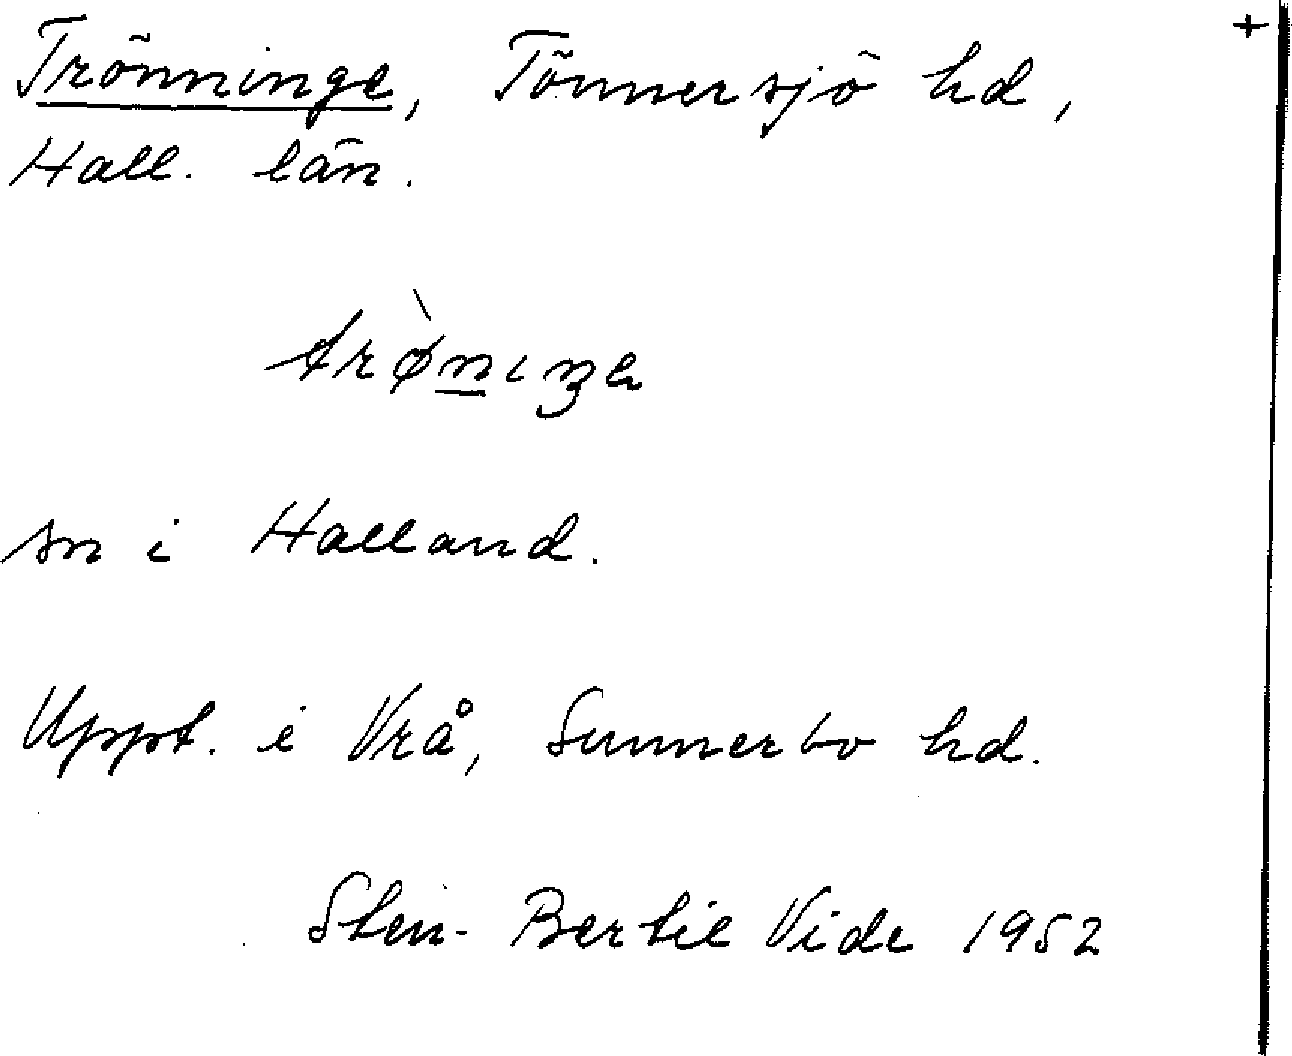 +
Trönninge, Tönnersjö hd,
Hall. län.
trø̀nıŋɐ
sn i Halland.
Uppt. i Vrå, Sunnerbo hd.
Sten-Bertil Vide 1952